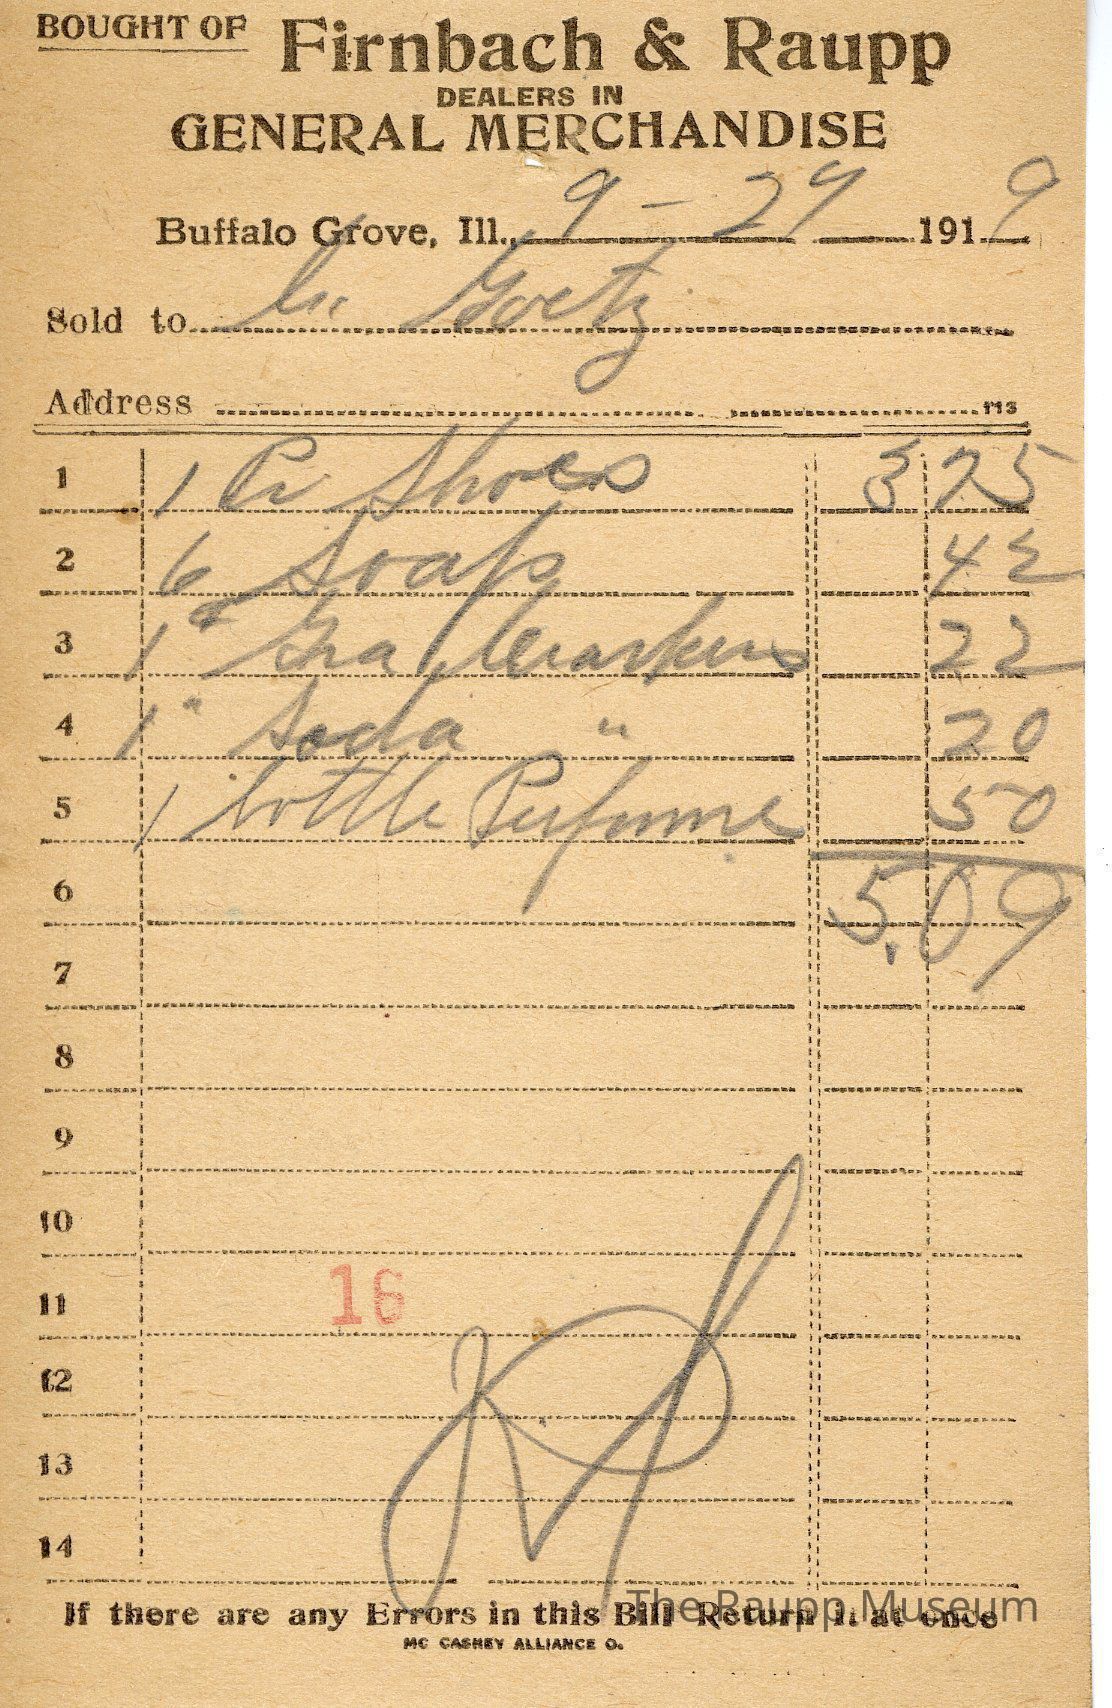 BOUGHT OF Firnbach & Raupp
DEALERS IN
GENERAL MERCHANDISE
Buffalo Grove, Ill., 9 - 29 1919
Sold to Goetz
Address 113
1 1 Pr Shoes 3 75
2 6 Soap 42
3 1# Gra Crackers 22
4 1" Soda " 20
5 1 bottle Perfume 50
6 5.09
7
8
9
10
11 16
12
13
14
If there are any Errors in this Bill Return it at once
The Raupp Museum
MC CASKEY ALLIANCE O.